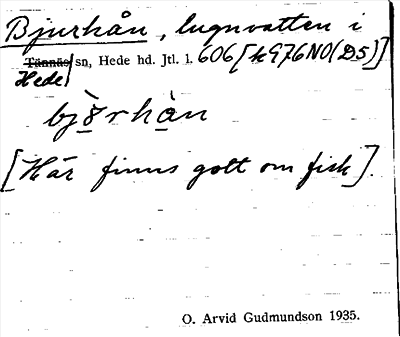 Bjurhån, lugnvatten i
Tännäs sn, Hede hd. Jtl. l. 606 [k976NO(D5)]
Hede
bjo̱rhà̱n
[Här finns gott om fisk].
O. Arvid Gudmundson 1935.